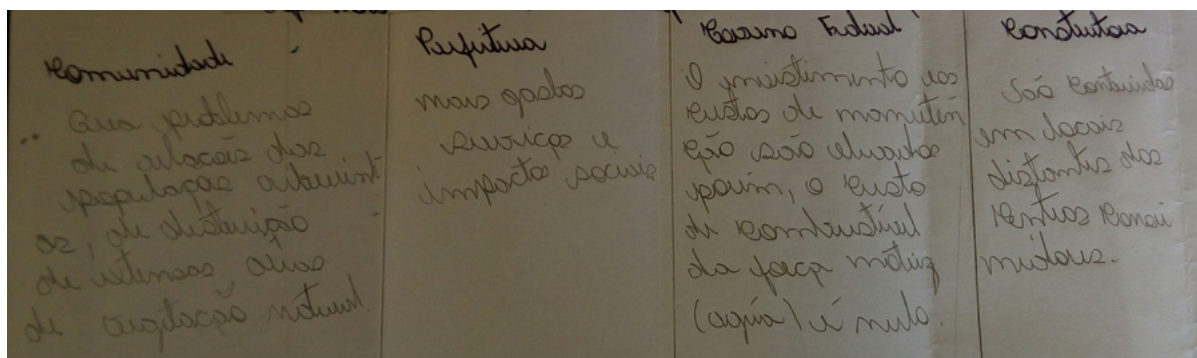 Comunidade
Gera problemas
de relocação das
população ribeirinh
as, de destruição
de extensas áreas
de vegetação natural.
Prefeitura
mais gastos
serviços e
impactos sociais
Governo Federal
O investimento nos
custos de manuten
ção são elevados
porém, o custo
de combustível
da força motriz
(água) é nulo.
Construtora
São construídas
em locais
distantes dos
centros consu
midores.